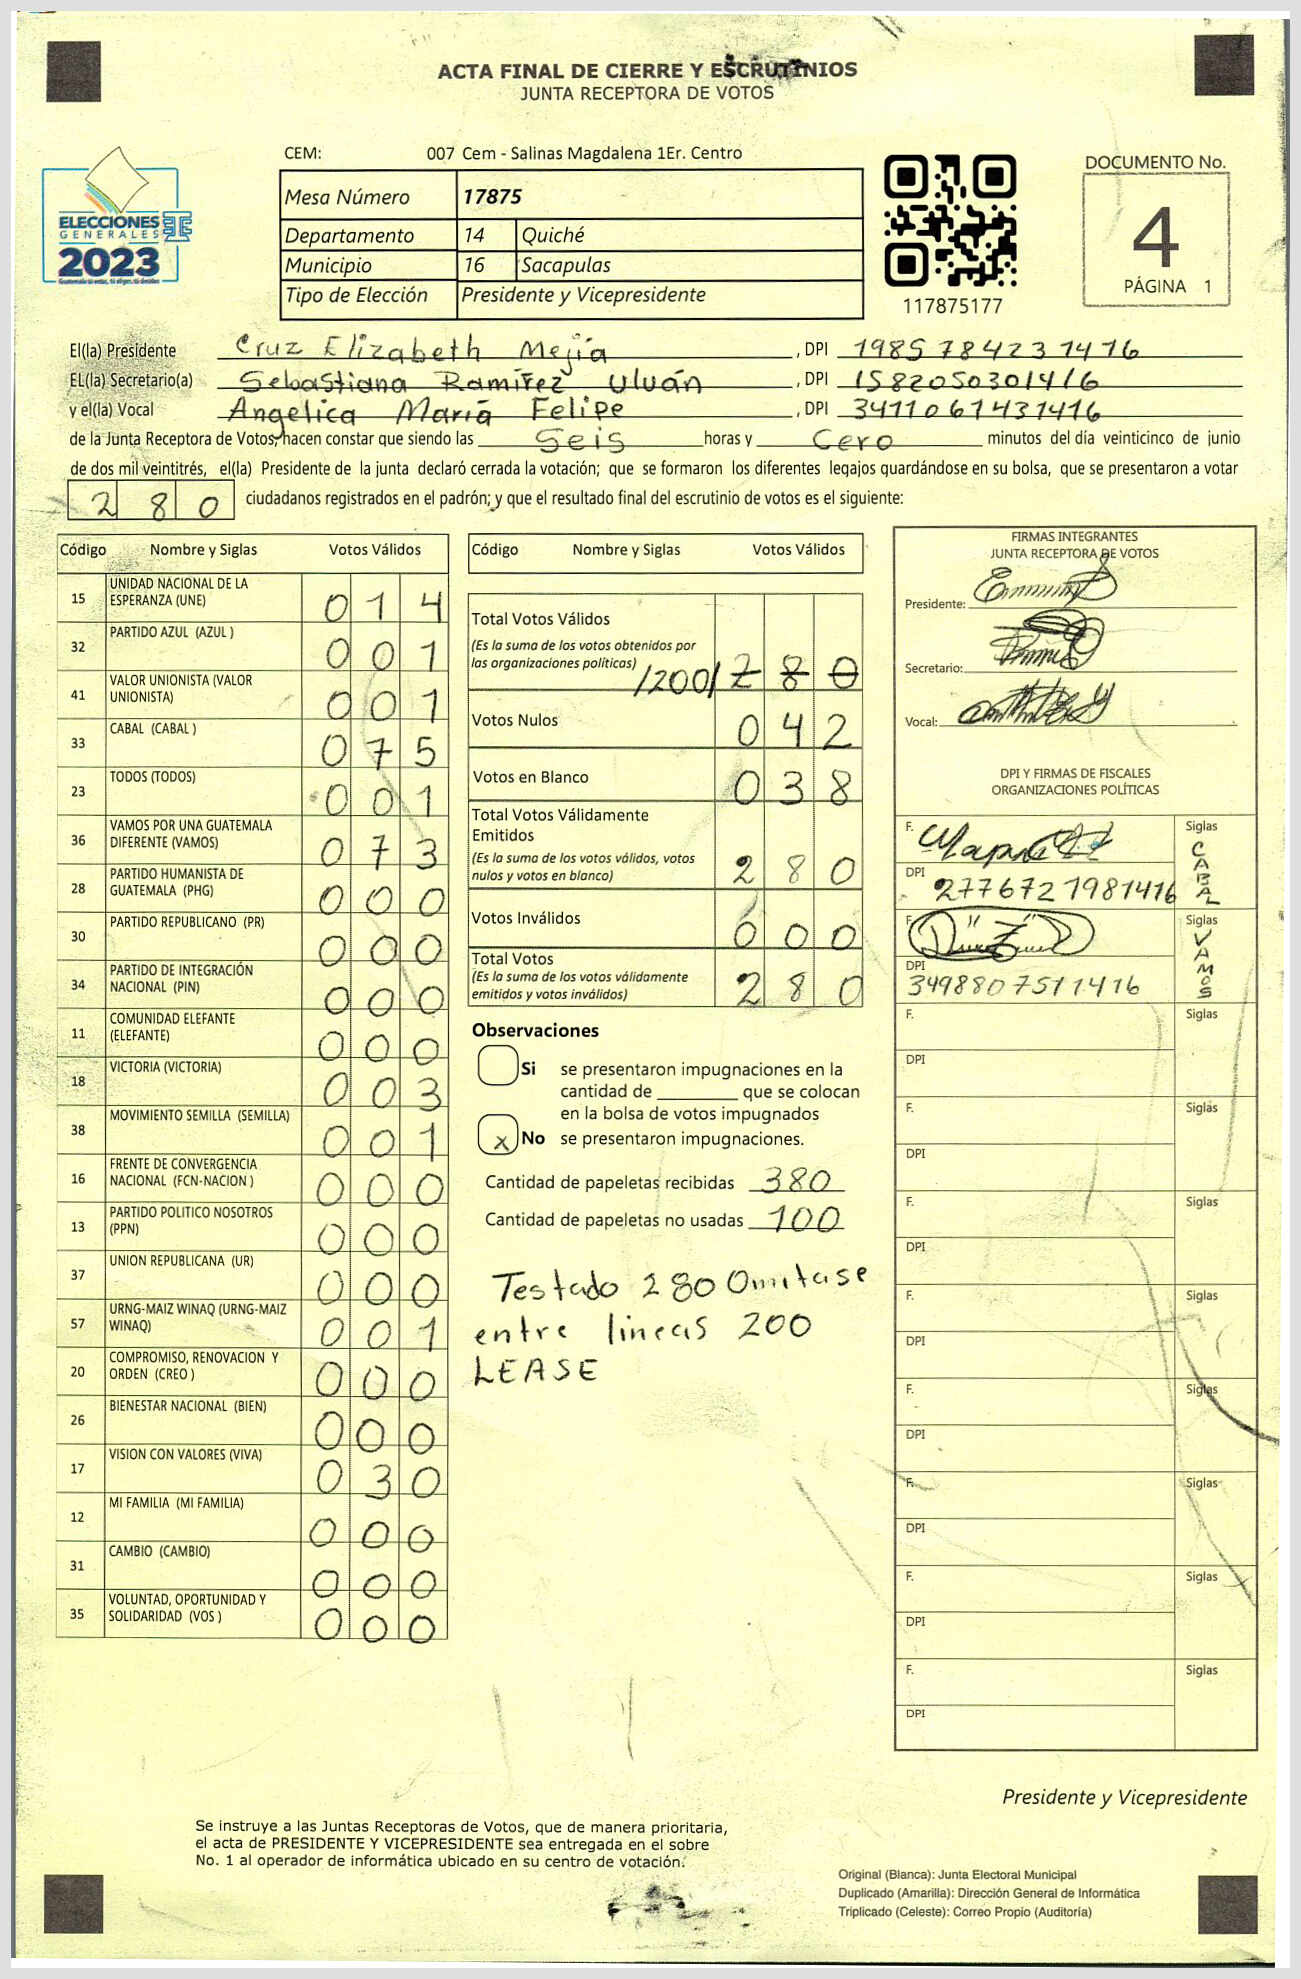 ACTA FINAL DE CIERRE Y ESCRUTINIOS
JUNTA RECEPTORA DE VOTOS
CEM: 007 Cem - Salinas Magdalena 1Er. Centro
ELECCIONES
GENERALES
2023
Mesa Número 17875
Departamento 14 Quiché
Municipio 16 Sacapulas
Tipo de Elección Presidente y Vicepresidente
117875177
DOCUMENTO No.
4
PÁGINA 1
El(la) Presidente Cruz Elizabeth Mejía , DPI 1985784231416
EL(la) Secretario(a) Sebastiana Ramírez Uluán , DPI 1582050301416
y el(la) Vocal Angelica María Felipe , DPI 3411061431416
de la Junta Receptora de Votos, hacen constar que siendo las Seis horas y Cero minutos del día veinticinco de junio
de dos mil veintitrés, el(la) Presidente de la junta declaró cerrada la votación; que se formaron los diferentes legajos guardándose en su bolsa, que se presentaron a votar
280 ciudadanos registrados en el padrón; y que el resultado final del escrutinio de votos es el siguiente:
Código Nombre y Siglas Votos Válidos
15 UNIDAD NACIONAL DE LA ESPERANZA (UNE) 014
32 PARTIDO AZUL (AZUL ) 001
41 VALOR UNIONISTA (VALOR UNIONISTA) 001
33 CABAL (CABAL ) 075
23 TODOS (TODOS) 001
36 VAMOS POR UNA GUATEMALA DIFERENTE (VAMOS) 073
28 PARTIDO HUMANISTA DE GUATEMALA (PHG) 000
30 PARTIDO REPUBLICANO (PR) 000
34 PARTIDO DE INTEGRACIÓN NACIONAL (PIN) 000
11 COMUNIDAD ELEFANTE (ELEFANTE) 000
18 VICTORIA (VICTORIA) 003
38 MOVIMIENTO SEMILLA (SEMILLA) 001
16 FRENTE DE CONVERGENCIA NACIONAL (FCN-NACION ) 000
13 PARTIDO POLITICO NOSOTROS (PPN) 000
37 UNION REPUBLICANA (UR) 000
57 URNG-MAIZ WINAQ (URNG-MAIZ WINAQ) 001
20 COMPROMISO, RENOVACION Y ORDEN (CREO ) 000
26 BIENESTAR NACIONAL (BIEN) 000
17 VISION CON VALORES (VIVA) 030
12 MI FAMILIA (MI FAMILIA) 000
31 CAMBIO (CAMBIO) 000
35 VOLUNTAD, OPORTUNIDAD Y SOLIDARIDAD (VOS ) 000
Código Nombre y Siglas Votos Válidos
Total Votos Válidos
(Es la suma de los votos obtenidos por
las organizaciones políticas) /200/ 280
Votos Nulos 042
Votos en Blanco 038
Total Votos Válidamente
Emitidos
(Es la suma de los votos válidos, votos
nulos y votos en blanco) 280
Votos Inválidos 000
Total Votos
(Es la suma de los votos válidamente
emitidos y votos inválidos) 280
Observaciones
Si se presentaron impugnaciones en la
cantidad de ________ que se colocan
en la bolsa de votos impugnados
x No se presentaron impugnaciones.
Cantidad de papeletas recibidas 380
Cantidad de papeletas no usadas 100
Testado 280 Omitase
entre lineas 200
LEASE
FIRMAS INTEGRANTES
JUNTA RECEPTORA DE VOTOS
Presidente:
Secretario:
Vocal:
DPI Y FIRMAS DE FISCALES
ORGANIZACIONES POLÍTICAS
F. Siglas CABAL
DPI 2776727981416
F. Siglas VAMOS
DPI 3498807511416
F. Siglas
DPI
F. Siglas
DPI
F. Siglas
DPI
F. Siglas
DPI
F. Siglas
DPI
F. Siglas
DPI
F. Siglas
DPI
F. Siglas
DPI
Presidente y Vicepresidente
Se instruye a las Juntas Receptoras de Votos, que de manera prioritaria,
el acta de PRESIDENTE Y VICEPRESIDENTE sea entregada en el sobre
No. 1 al operador de informática ubicado en su centro de votación.
Original (Blanca): Junta Electoral Municipal
Duplicado (Amarilla): Dirección General de Informática
Triplicado (Celeste): Correo Propio (Auditoría)